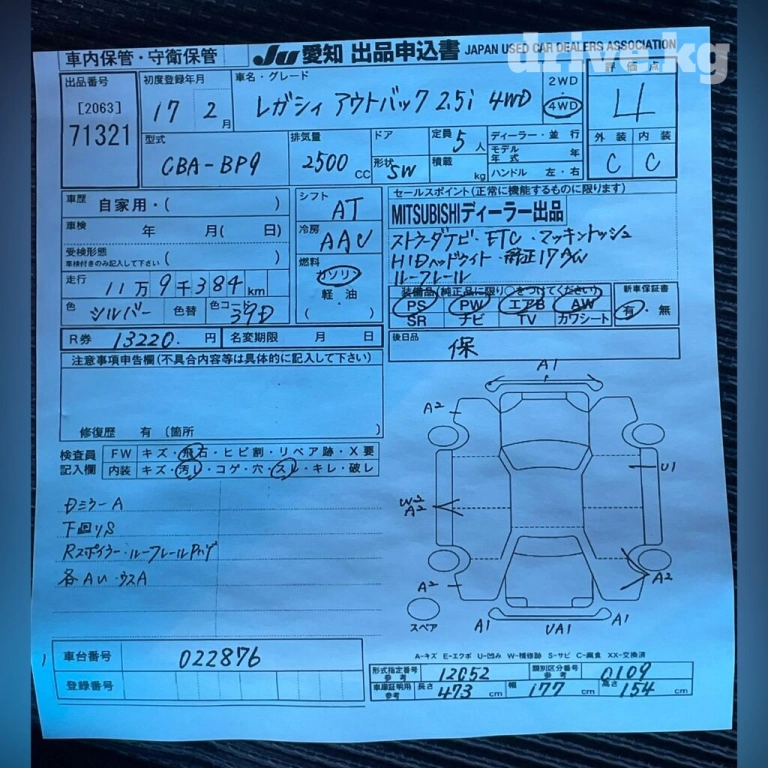 車内保管・守衛保管
JU 愛知 出品申込書 JAPAN USED CAR DEALERS ASSOCIATION
drive.kg
出品番号 初度登録年月 車名・グレード 2WD 評価点
[2063] 17 2月 レガシィ アウトバック 2.5i 4WD 4WD 4
71321
型式 排気量 ドア 定員 5人 ディーラー・並行 外装 内装
CBA-BP9 2500 CC 形状 SW 積載 kg モデル年式 年 C C
ハンドル 左・右
車歴 自家用・( ) シフト AT セールスポイント(正常に機能するものに限ります)
車検 年 月( 日) 冷房 AAC MITSUBISHIディーラー出品
受検形態 ETC・マッキントッシュ
車検付きのみ記入して下さい ( ) 燃料 ガソリン HIDヘッドライト・純正17
走行 11万9千384km 軽油 ルーフレール
( ) 装備品(純正品に限り○をつけてください) 新車保証書
色 シルバー 色替 色コード 39D PS PW エアB AW 有・無
SR ナビ TV カワシート
R券 13220円 名変期限 月 日 後日品 保
注意事項申告欄(不具合内容等は具体的に記入して下さい)
修復歴 有 (箇所 )
検査員記入欄 FW キズ・飛石・ヒビ割・リペア跡・X要
内装 キズ・汚レ・コゲ・穴・スレ・キレ・破レ
DミラーA
下回りS
Rスポイラー・ルーフレール
各AU・ウスA
A1
A2
U1
W2
A2
A2
A2
A1
UA1
A1
スペア
A-キズ E-エクボ U-凹み W-補修跡 S-サビ C-腐食 XX-交換済
車台番号 022876
登録番号
形式指定番号 参考 12052 類別区分番号 参考 0109
車庫証明用 参考 長さ 473 cm 幅 177 cm 高さ 154 cm